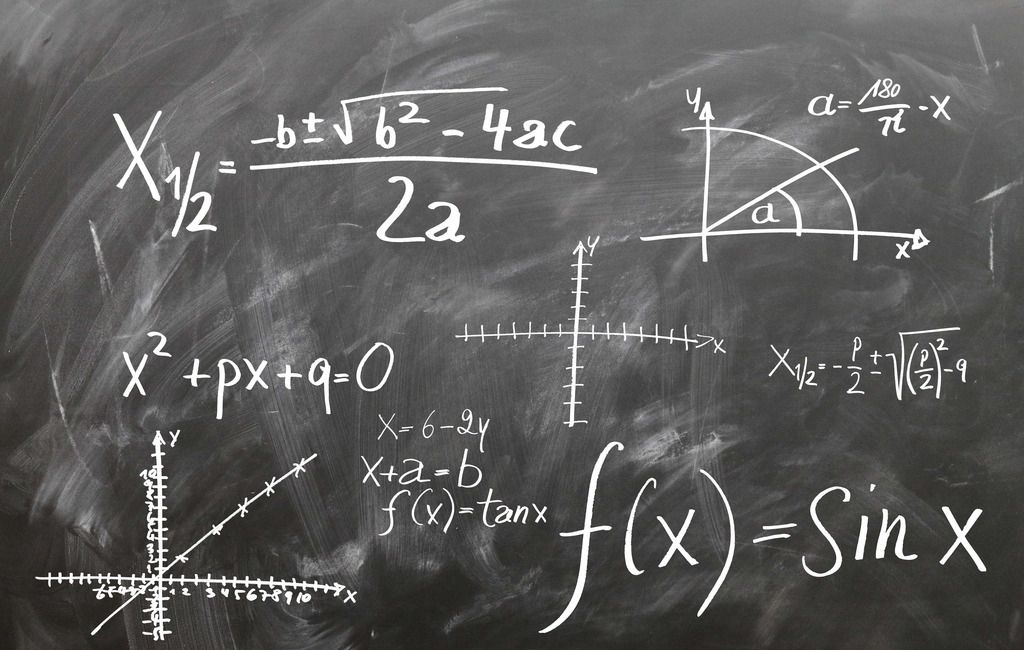 X1/2 = -b ± √b² - 4ac / 2a
y
a = 180/π · x
a
x
y
x
x² + px + q = 0
X1/2 = -p/2 ± √(p/2)² - q
x = 6 - 2y
x + a = b
f(x) = tan x
f(x) = Sin x
y
10
1 2 3 4 5 6 7 8 9 10
x